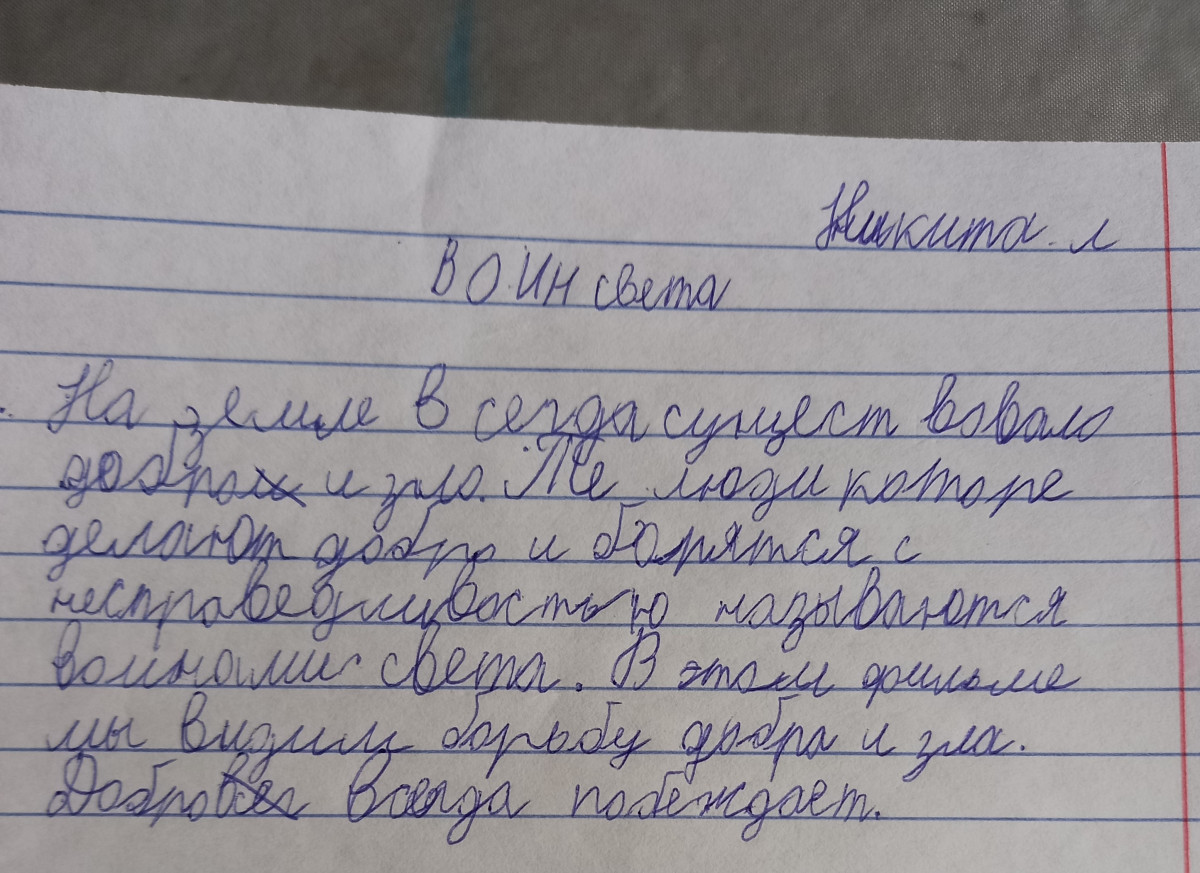 Никита. л
ВОИН света
На земле в сегда сущест вовало
добро и зло. Те люди которе
делают добро и борятся с
несправедливостью называются
воинами света. В этом фильме
мы видим борьбу добра и зла.
Добро всегда побеждает.